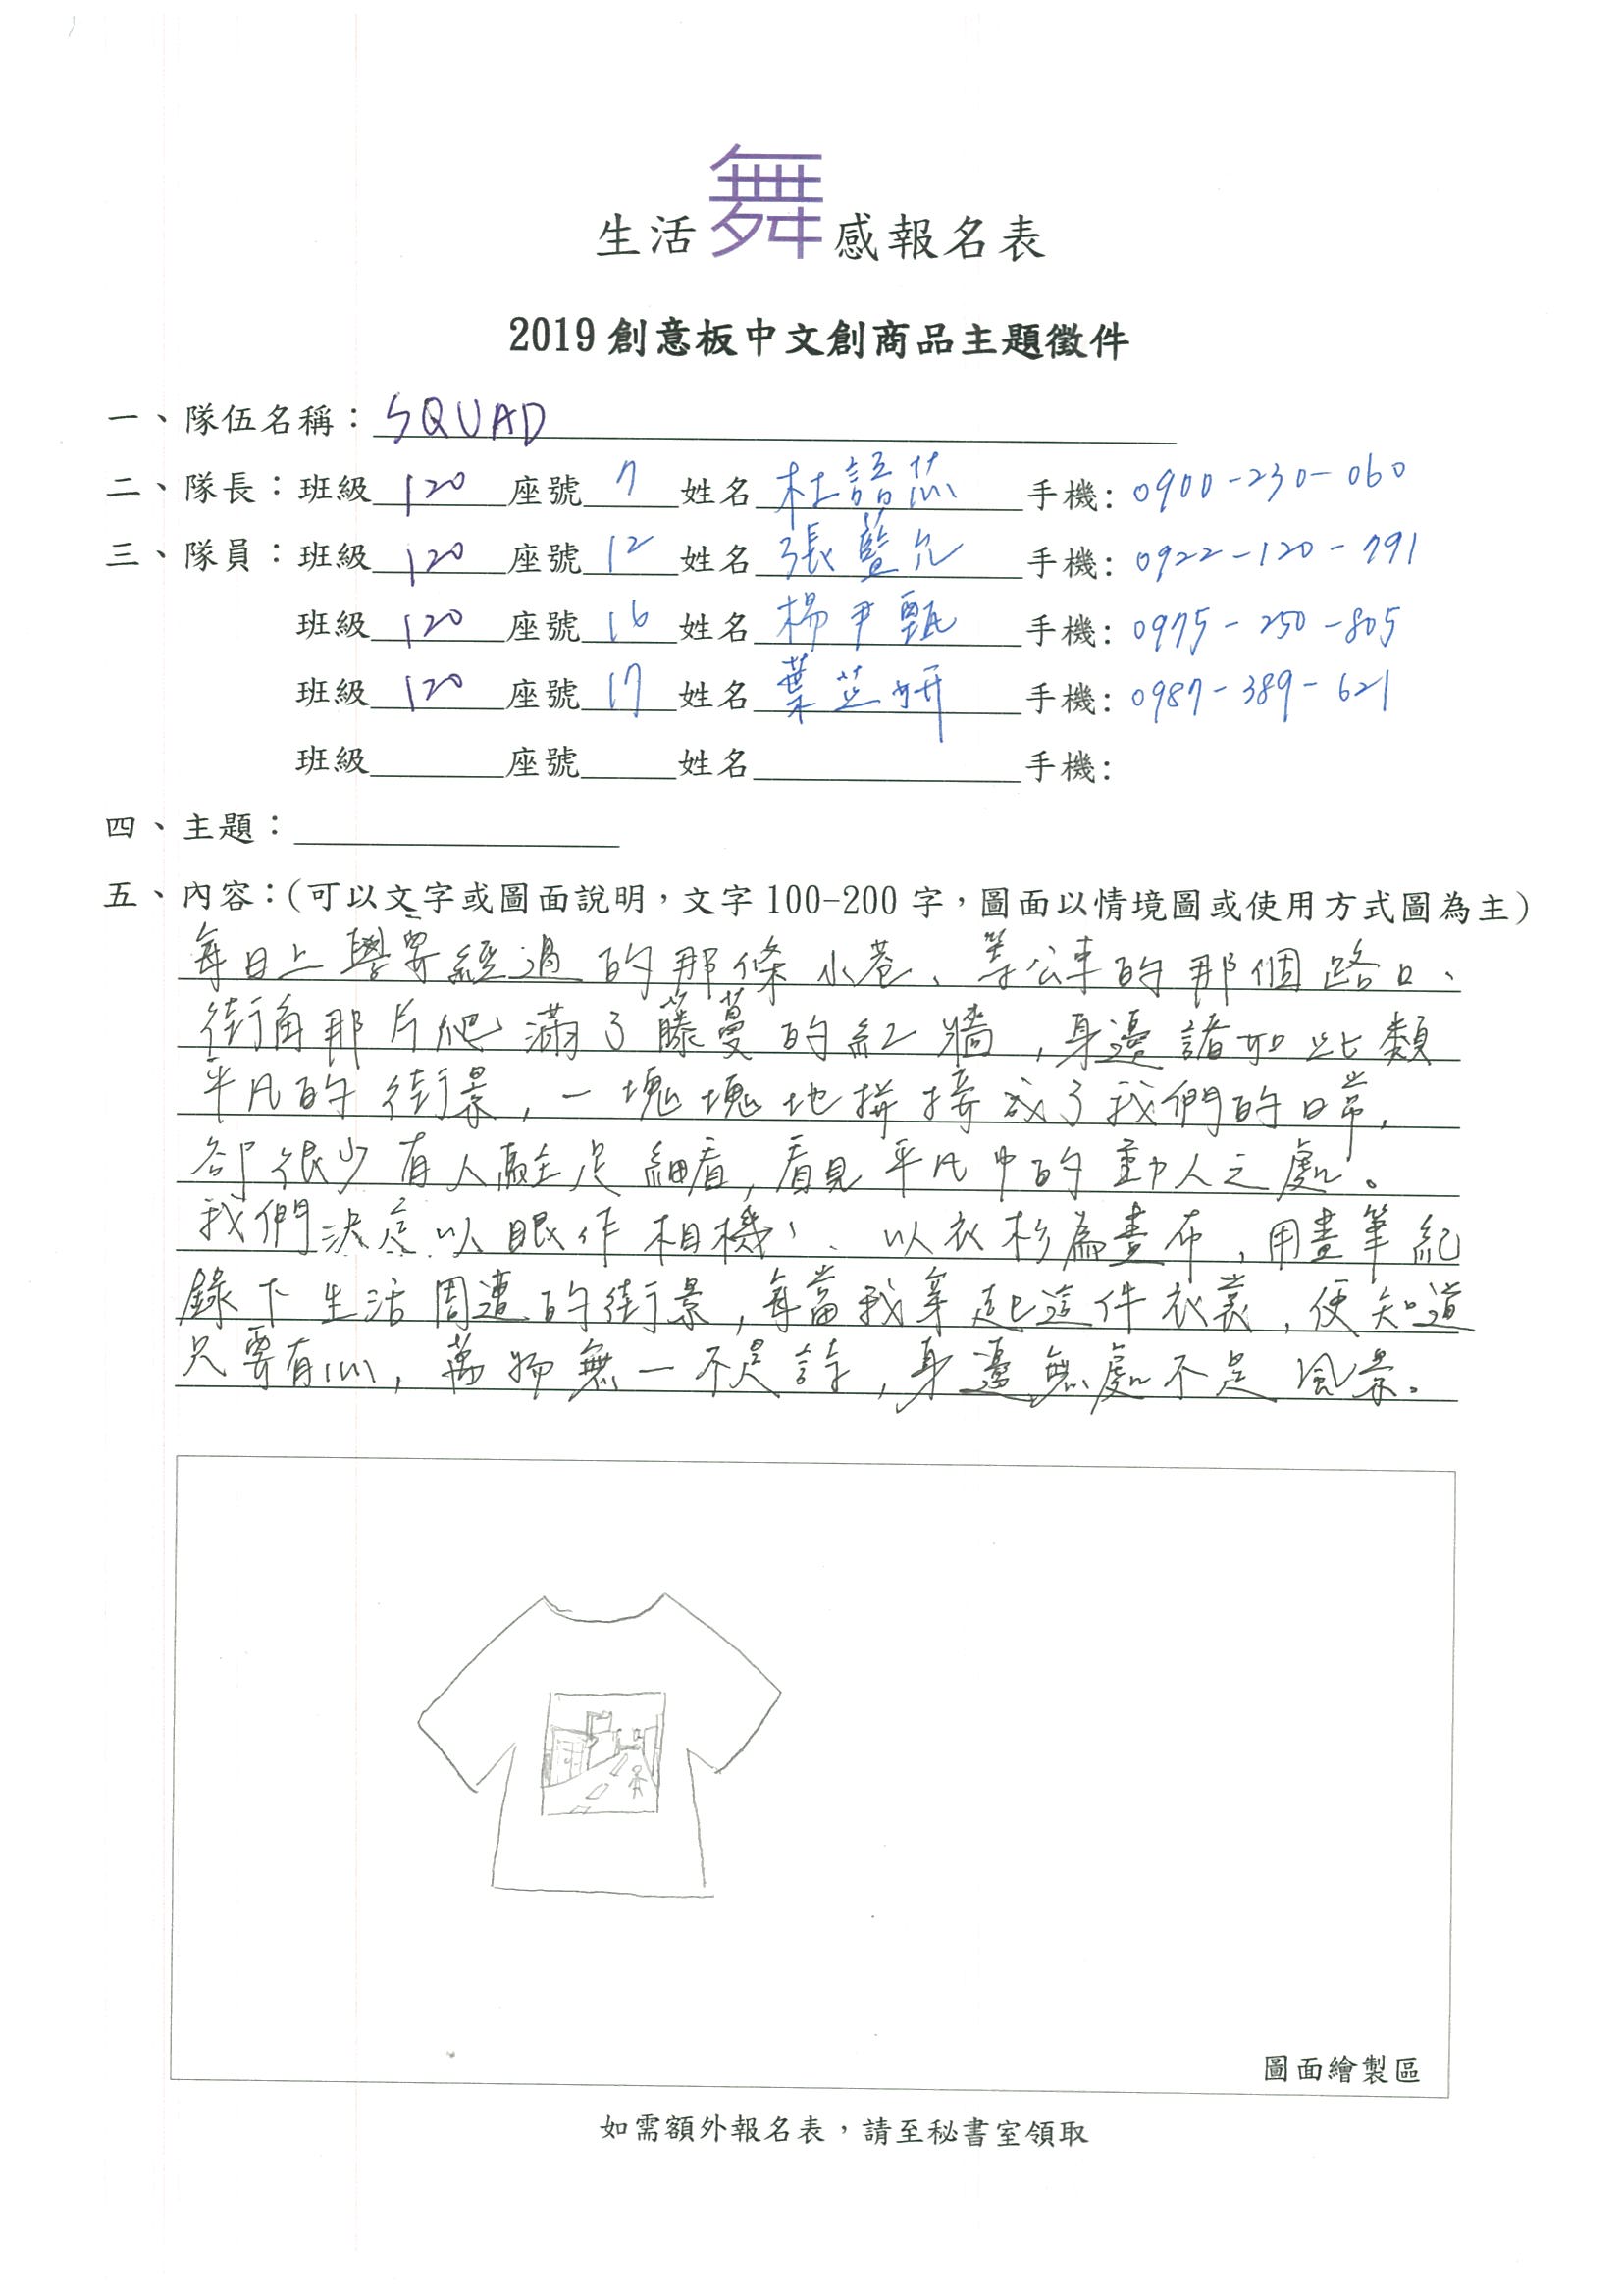 生活舞感報名表
2019創意板中文創商品主題徵件
一、隊伍名稱：SQUAD
二、隊長：班級 120 座號 7 姓名 杜語芯 手機: 0900-230-060
三、隊員：班級 120 座號 12 姓名 張藍允 手機: 0922-120-791
班級 120 座號 16 姓名 楊尹甄 手機: 0975-250-805
班級 120 座號 17 姓名 葉芷妍 手機: 0987-389-621
班級 座號 姓名 手機:
四、主題：
五、內容：(可以文字或圖面說明，文字100-200字，圖面以情境圖或使用方式圖為主)
每日上學要經過的那條小巷、等公車的那個路口、
街角那片爬滿了藤蔓的紅牆，身邊諸如此類
平凡的街景，一塊塊地拼接成了我們的日常，
卻很少有人駐足細看，看見平凡中的動人之處。
我們決定以眼作相機、以衣衫為畫布，用畫筆紀
錄下生活周遭的街景，每當我穿起這件衣裳，便知道
只要有心，萬物無一不是詩，身邊無處不是風景。
圖面繪製區
如需額外報名表，請至秘書室領取